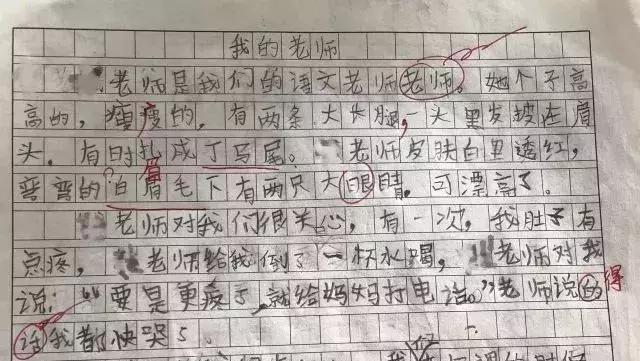 我的老师
老师是我们的语文老师老师。她个子高
高的,瘦瘦的,有两条大长腿,一头黑发披在肩
头,有时扎成了马尾。老师皮肤白里透红,
弯弯的白眉毛下有两只大眼睛,可漂亮了。
老师对我们很关心,有一次,我肚子有
点疼,老师给我倒了一杯水喝,老师对我
说:“要是更疼了,就给妈妈打电话。”老师说的得
话我都快哭了